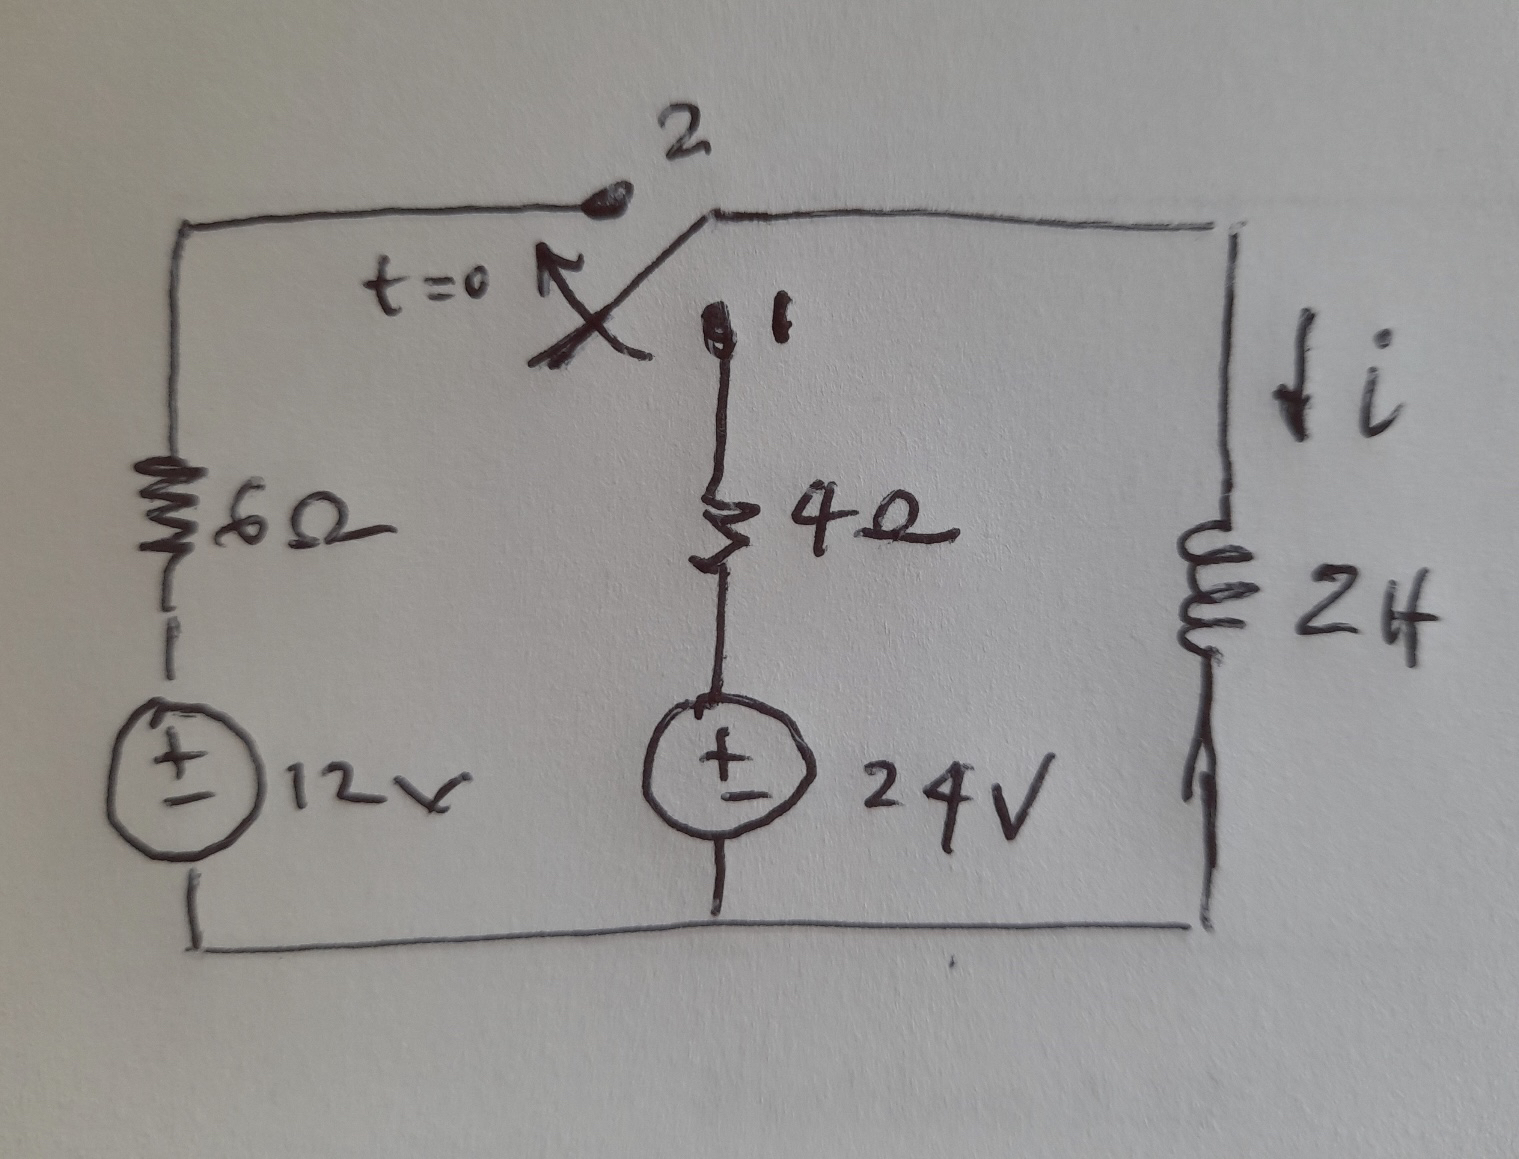 2
t=0
1
i
6Ω
4Ω
2H
+
-
12v
+
-
24V